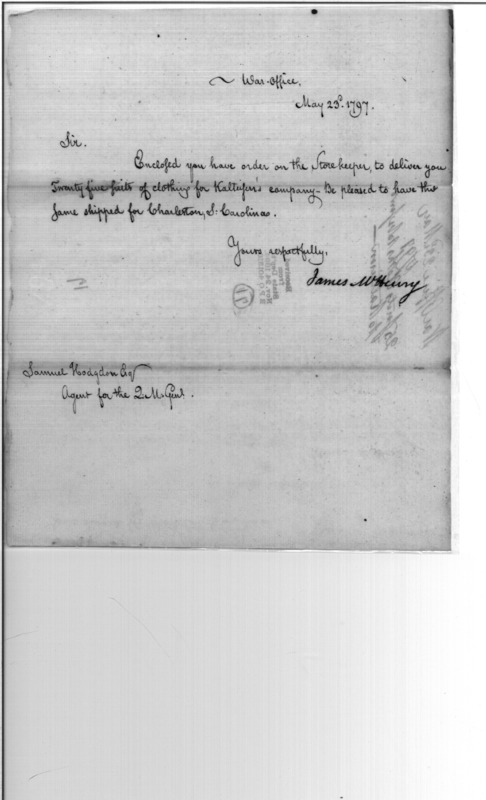 War-Office,
May 23d. 1797.
Sir.
Enclosed you have order on the Storekeeper, to deliver you
Twenty five suits of clothing for Kalteisen's company - Be pleased to have the
same shipped for Charleston, S. Carolina.
Yours respectfully,
James McHenry
17
Samuel Hodgdon Esqr
Agent for the Q. M. Genl.